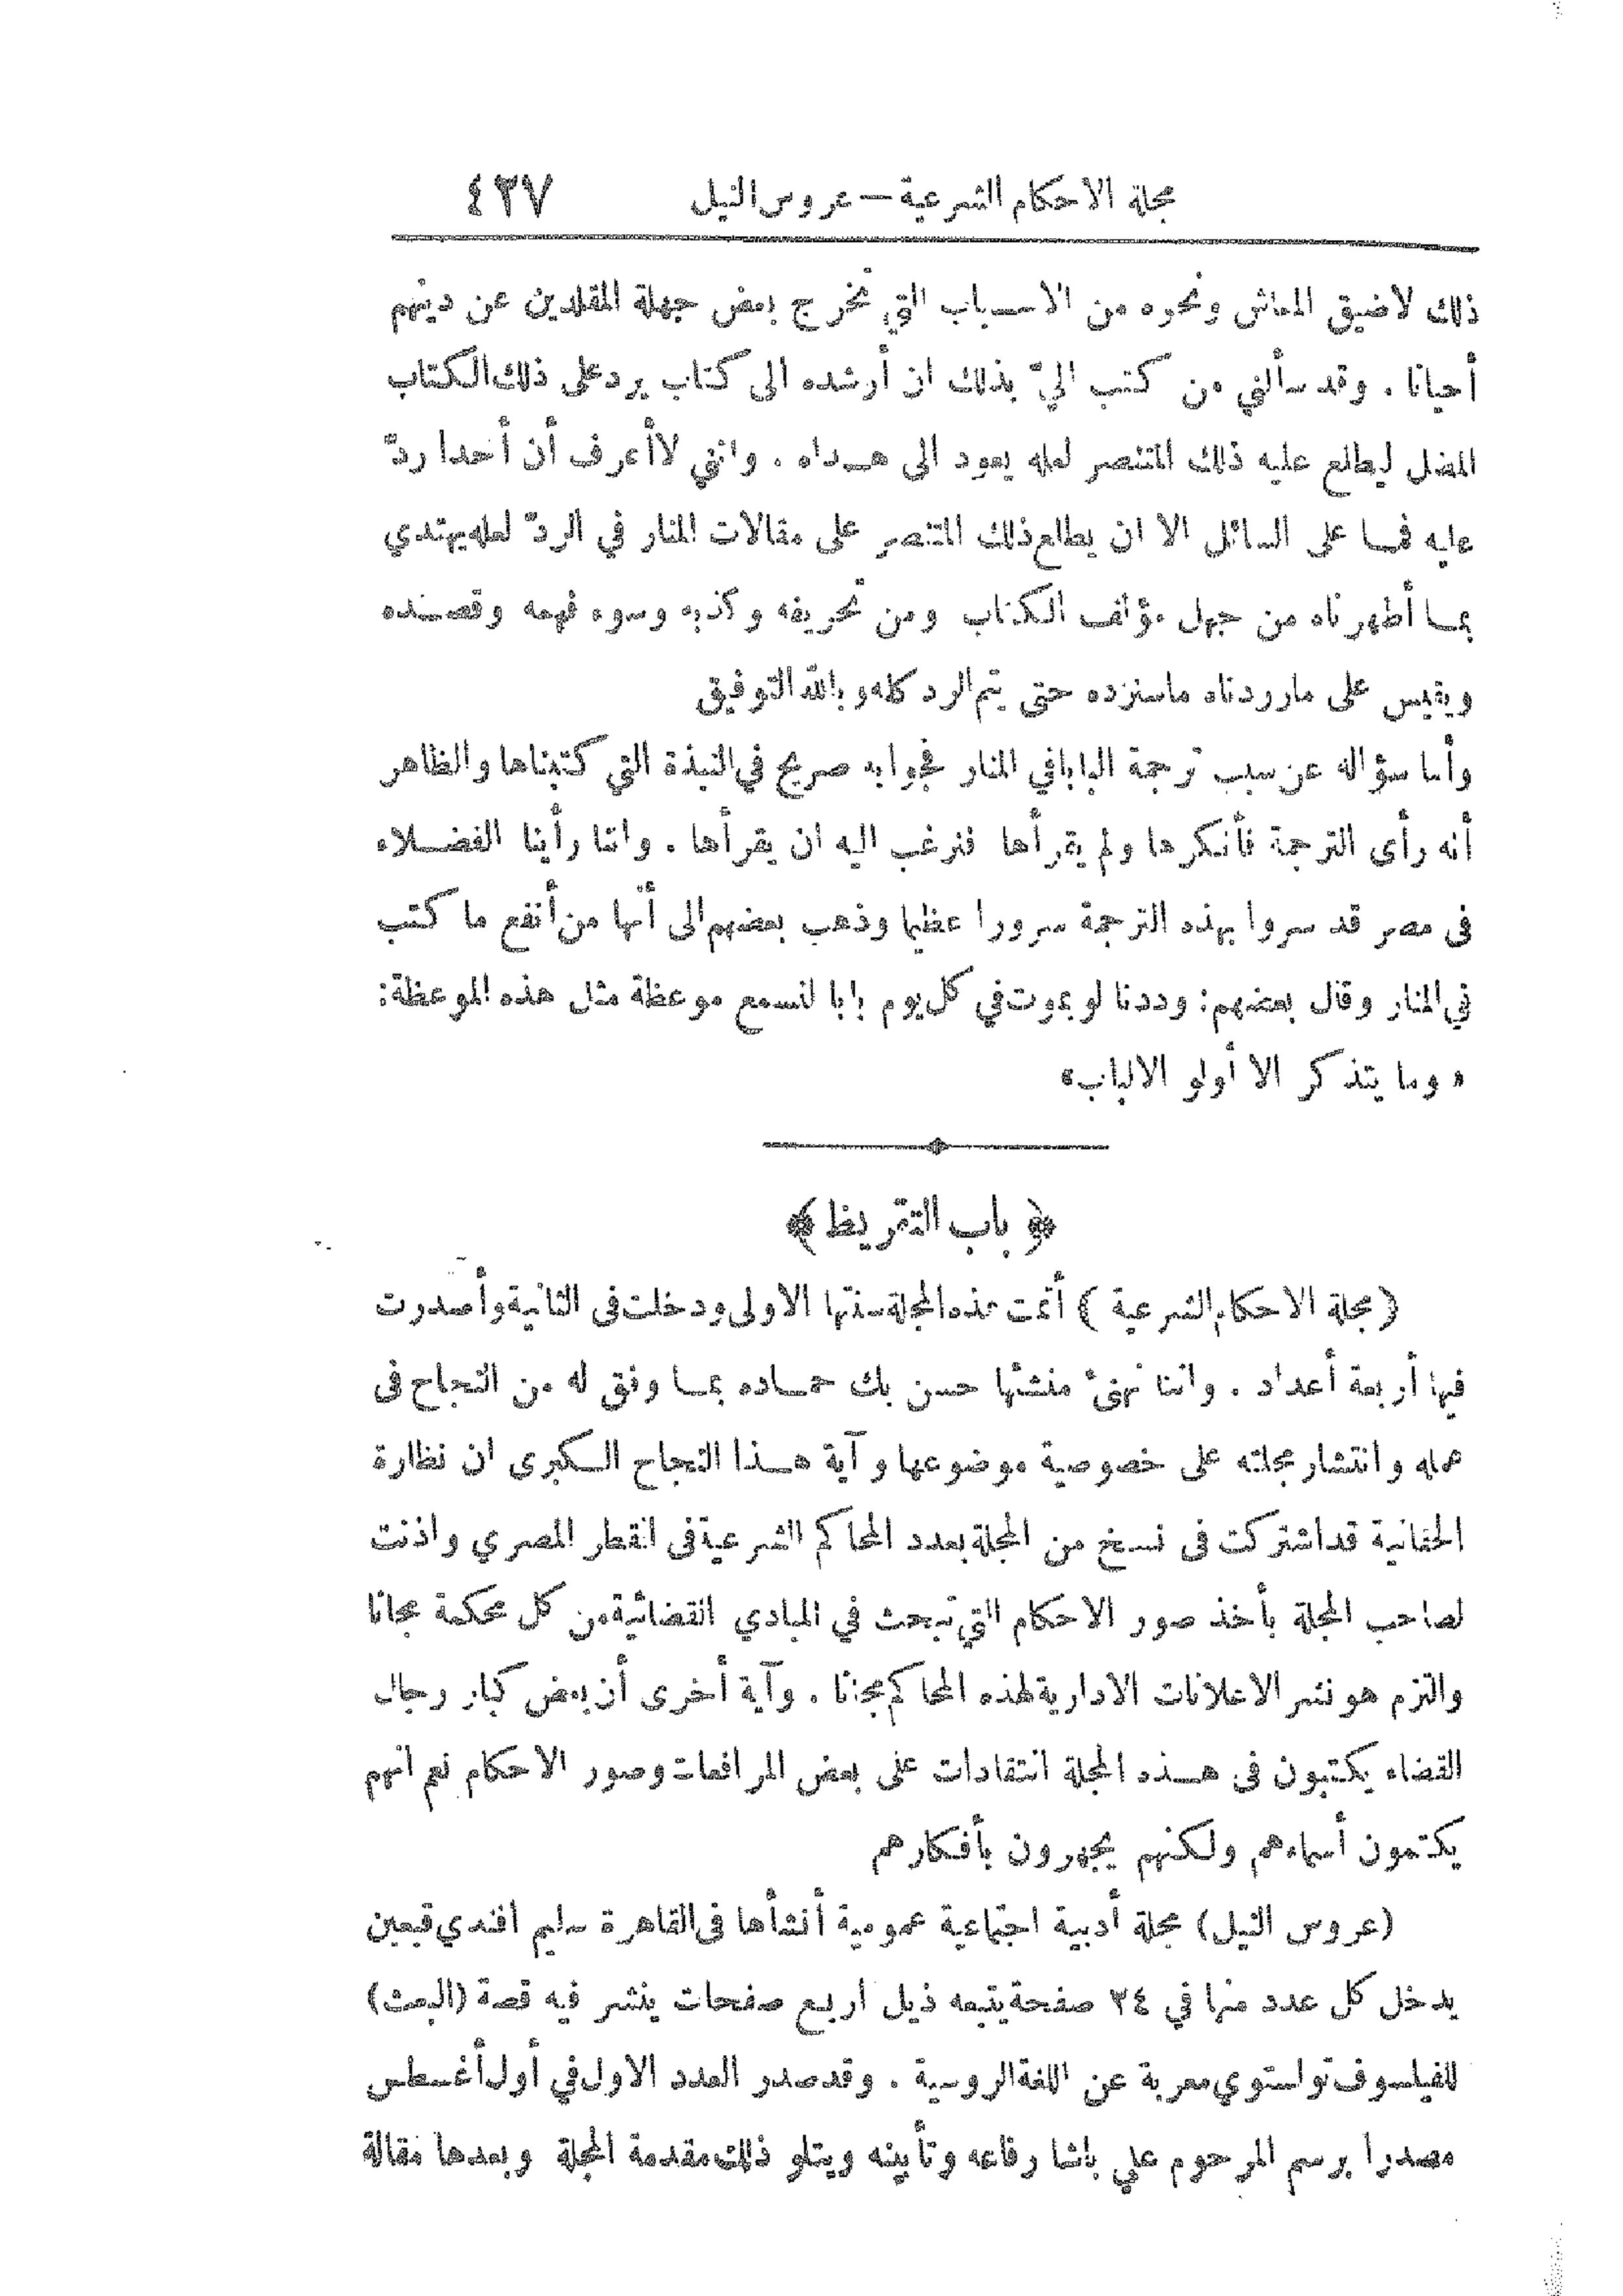 مجلة الاحكام الشرعية — عروس النيل ٤٣٧
ذلك لاضيق المعاش ونحوه من الاسباب التي تخرج بعض جهلة المقلدين عن دينهم
أحيانا . وقد سألني من كتب اليّ بذلك ان أرشده الى كتاب يرد على ذلك الكتاب
المضل ليطلع عليه ذلك المتنصر لعله يعود الى هداه . وانني لا أعرف أن أحدا ردّ
عليه فما على السائل الا ان يطلع ذلك المتنصر على مقالات المنار في الردّ لعله يهتدي
بما أظهرناه من جهل مؤلف الكتاب ومن تحريفه وكذبه وسوء فهمه وقصده
ويقيس على مارددناه ماسنرده حتى يتم الرد كله وبالله التوفيق
وأما سؤاله عن سبب ترجمة البابا في المنار فجوابه صريح في النبذة التي كتبناها والظاهر
أنه رأى الترجمة فأنكرها ولم يقرأها فنرغب اليه ان يقرأها . واننا رأينا الفضلاء
في مصر قد سروا بهذه الترجمة سرورا عظيما وذهب بعضهم الى أنها من أنفع ما كتب
في المنار وقال بعضهم: وددنا لو يموت في كل يوم بابا لنسمع موعظة مثل هذه الموعظة:
« وما يتذكر الا أولو الالباب»
﴿ باب التقريظ ﴾
( مجلة الاحكام الشرعية ) أتمت هذه المجلة سنتها الاولى ودخلت في الثانية وأصدرت
فيها أربعة أعداد . واننا نهنئ منشئها حسن بك حماده بما وفق له من النجاح في
عمله وانتشار مجلته على خصوصية موضوعها وآية هذا النجاح الكبرى ان نظارة
الحقانية قد اشتركت في نسخ من المجلة بعدد المحاكم الشرعية في القطر المصري واذنت
لصاحب المجلة بأخذ صور الاحكام التي تبحث في المبادي القضائية من كل محكمة مجانا
والتزم هو نشر الاعلانات الادارية لهذه المحاكم مجانا . وآية أخرى أن بعض كبار رجال
القضاء يكتبون في هذه المجلة انتقادات على بعض المرافعات وصور الاحكام نعم انهم
يكتمون أسماءهم ولكنهم يجهرون بأفكارهم
(عروس النيل) مجلة أدبية اجتماعية عمومية أنشأها في القاهرة سليم افندي قبعين
يدخل كل عدد منها في ٢٤ صفحة يتبعه ذيل اربع صفحات ينشر فيه قصة (البعث)
للفيلسوف تولستوي معربة عن اللغة الروسية . وقد صدر العدد الاول في أول أغسطس
مصدرا برسم المرحوم علي باشا رفاعه وتأبينه ويتلو ذلك مقدمة المجلة وبعدها مقالة